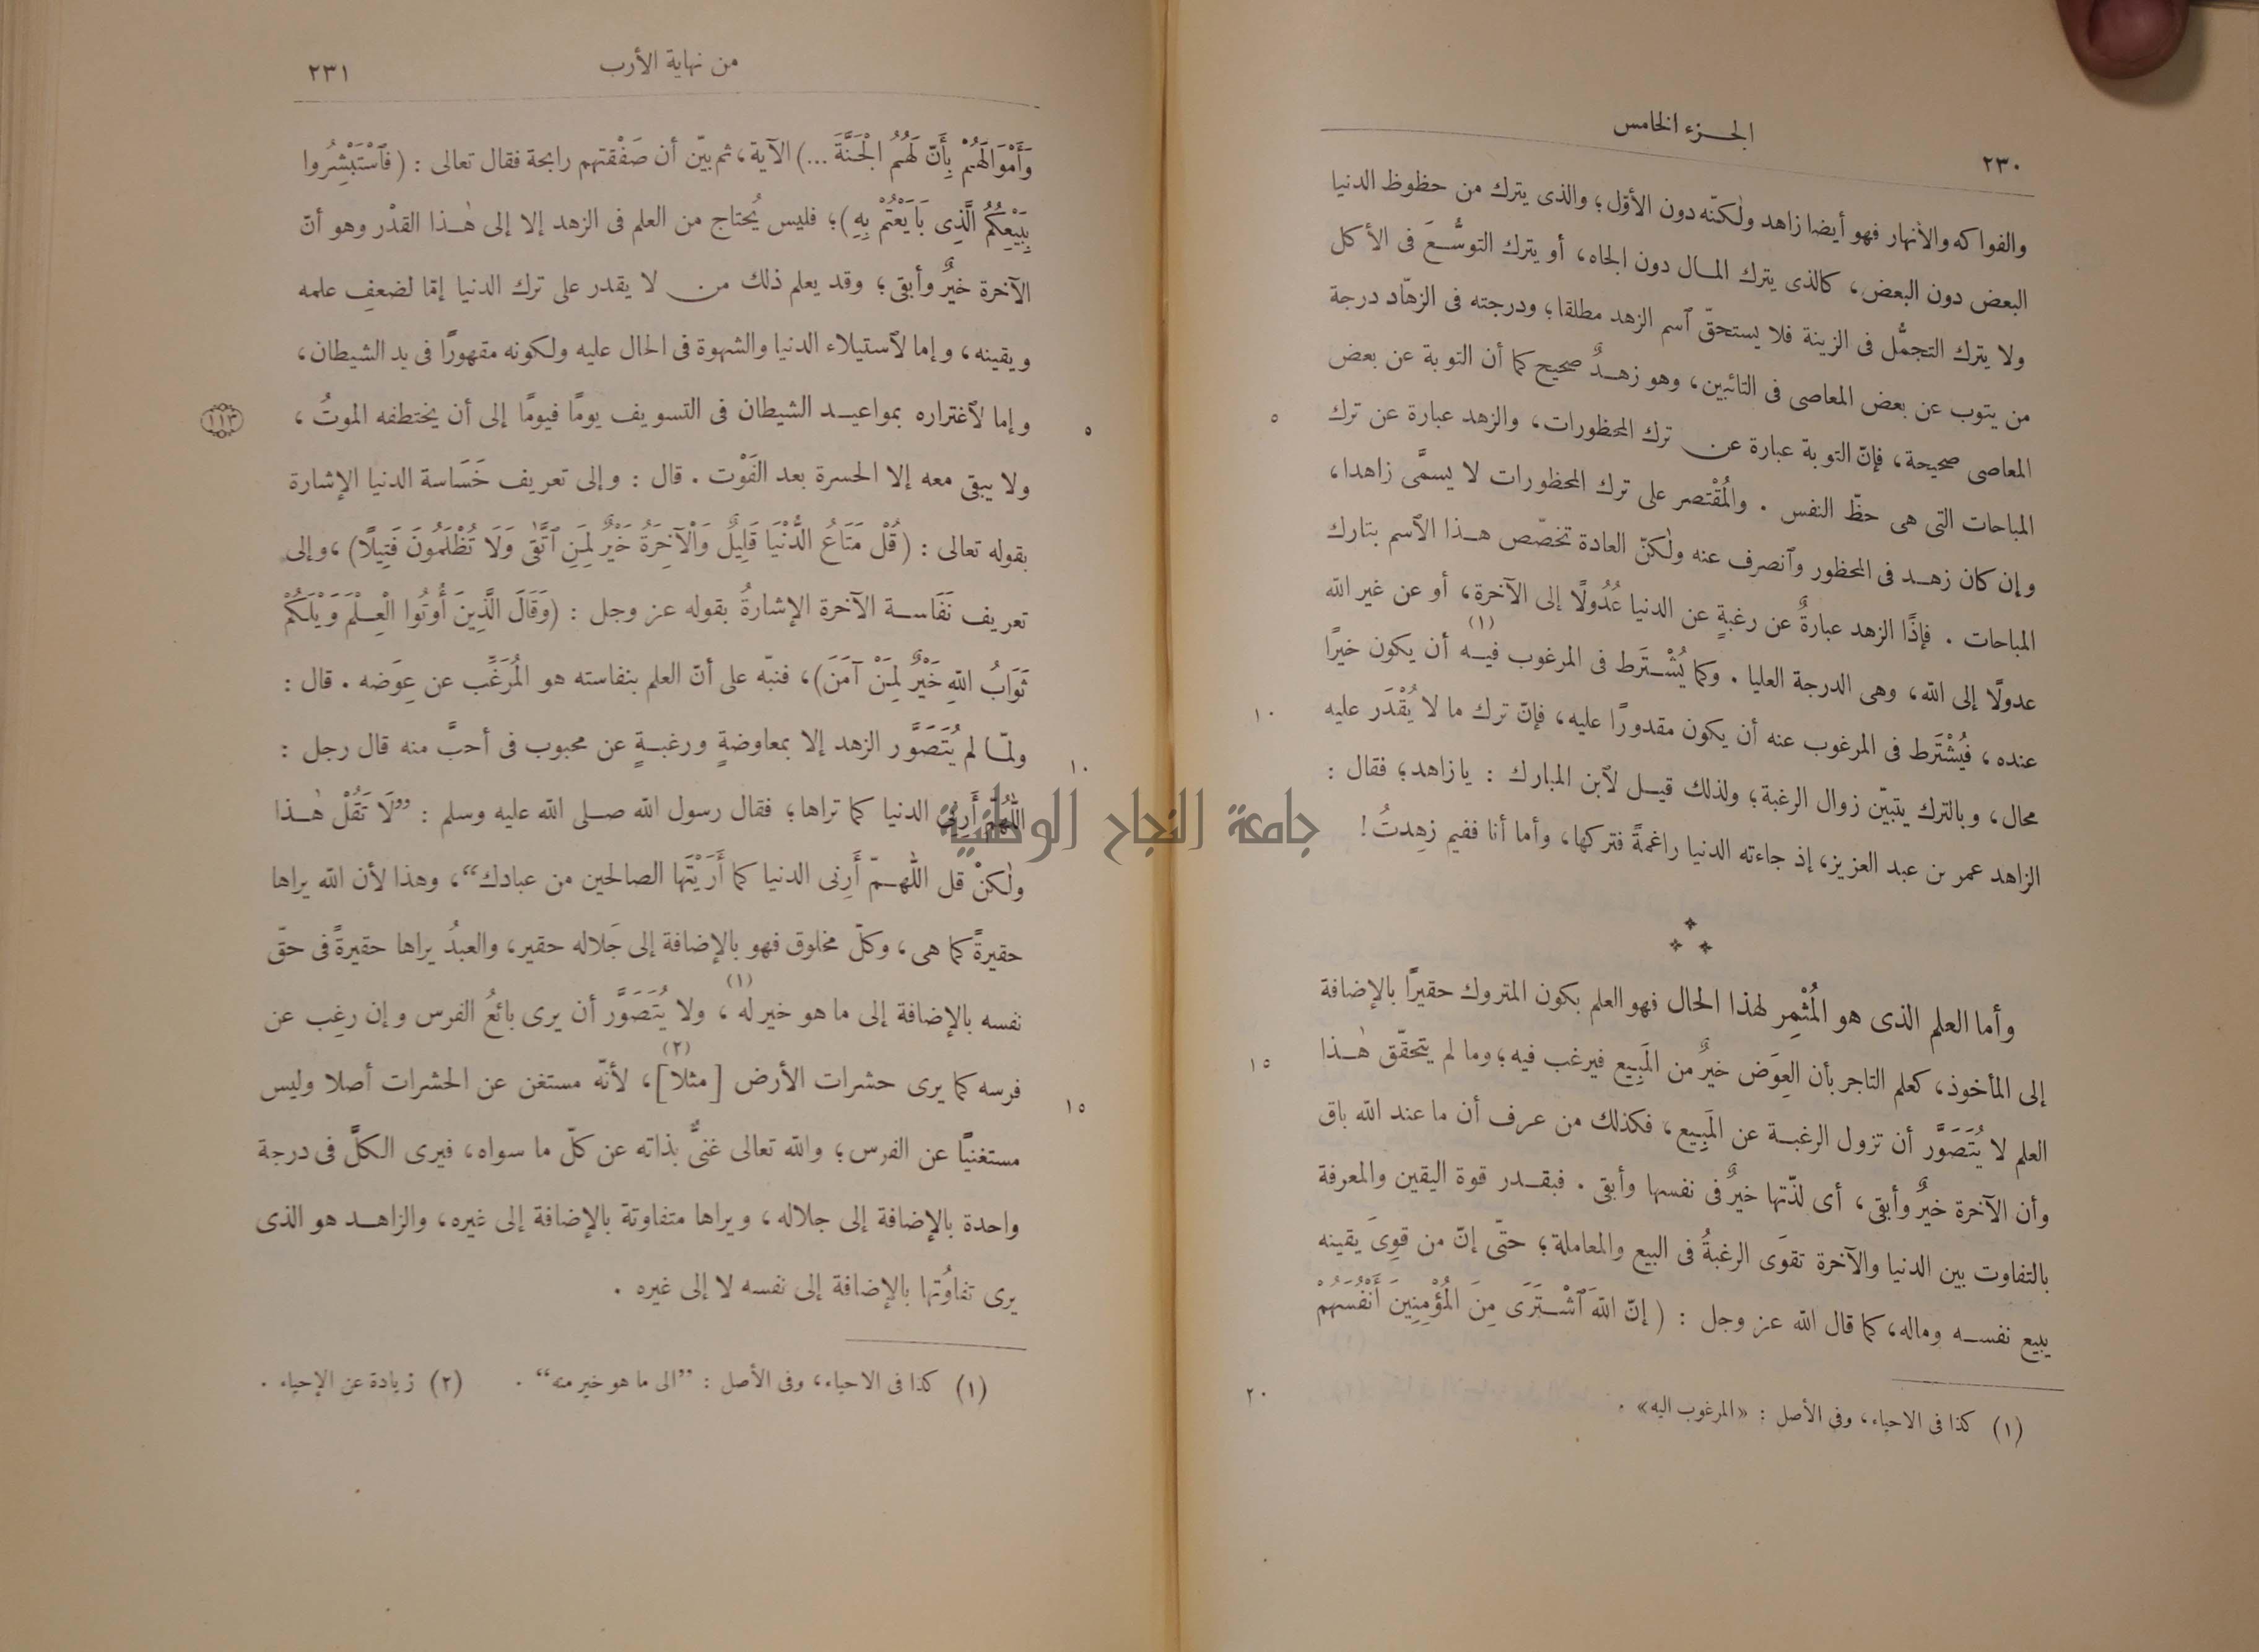 ٢٣٠
الجزء الخامس
والفواكه والأنهار فهو أيضا زاهد ولٰكنّه دون الأوّل؛ والذى يترك من حظوظ الدنيا
البعض دون البعض، كالذى يترك المال دون الجاه، أو يترك التوسُّعَ فى الأكل
ولا يترك التجمُّل فى الزينة فلا يستحقّ ٱسم الزهد مطلقا؛ ودرجته فى الزهّاد درجة
من يتوب عن بعض المعاصى فى التائبين، وهو زهدٌ صحيح كما أن التوبة عن بعض
المعاصى صحيحة، فإنّ التوبة عبارة عن ترك المحظورات، والزهد عبارة عن ترك
٥
المباحات التى هى حظّ النفس . والمُقْتصر على ترك المحظورات لا يسمَّى زاهدا،
وإن كان زهد فى المحظور وٱنصرف عنه ولٰكنّ العادة تخصّص هذا الٱسم بتارك
المباحات . فإذًا الزهد عبارةٌ عن رغبةٍ عن الدنيا عُدُولًا إلى الآخرة، أو عن غير الله
عدولًا إلى الله، وهى الدرجة العليا . وكما يُشْتَرَط فى المرغوب فيه (١) أن يكون خيرًا
عنده، فيُشْتَرَط فى المرغوب عنه أن يكون مقدورًا عليه، فإنّ ترك ما لا يُقْدَر عليه
١٠
محال، وبالترك يتبيّن زوال الرغبة؛ ولذلك قيل لٱبن المبارك : يا زاهد؛ فقال :
الزاهد عمر بن عبد العزيز، إذ جاءته الدنيا راغمةً فتركها، وأما أنا ففيم زهِدتُ!
وأما العلم الذى هو المُثْمِر لهذا الحال فهو العلم بكون المتروك حقيرًا بالإضافة
إلى المأخوذ، كعلم التاجر بأن العِوَض خيرٌ من المَبِيع فيرغب فيه؛ وما لم يتحقّق هٰذا
١٥
العلم لا يُتَصَوَّر أن تزول الرغبة عن المَبِيع، فكذلك من عرف أن ما عند الله باق
وأن الآخرة خيرٌ وأبقى، أى لذّتها خيرٌ فى نفسها وأبقى . فبقدر قوة اليقين والمعرفة
بالتفاوت بين الدنيا والآخرة تقوَى الرغبةُ فى البيع والمعاملة؛ حتّى إنّ من قوِىَ يقينه
يبيع نفسه وماله، كما قال الله عز وجل : (إنّ اللهَ ٱشْتَرَى مِنَ الْمُؤْمِنِينَ أَنْفُسَهُمْ
(١) كذا فى الاحياء، وفى الأصل : «المرغوب اليه» .
٢٠
من نهاية الأرب
٢٣١
وَأَمْوَالَهُمْ بِأَنّ لَهُمُ الْجَنَّةَ ...) الآية، ثم بيّن أن صَفْقتهم رابحة فقال تعالى : (فَٱسْتَبْشِرُوا
بِبَيْعِكُمُ الَّذِى بَايَعْتُمْ بِهِ)؛ فليس يُحتاج من العلم فى الزهد إلا إلى هٰذا القدْر وهو أنّ
الآخرة خيرٌ وأبقى؛ وقد يعلم ذلك من لا يقدر على ترك الدنيا إمّا لضعفِ علمه
ويقينه، وإما لٱستيلاء الدنيا والشهوة فى الحال عليه ولكونه مقهورًا فى يد الشيطان،
وإما لٱغتراره بمواعيد الشيطان فى التسويف يومًا فيومًا إلى أن يختطفه الموتُ،
٥
١١٣
ولا يبقى معه إلا الحسرة بعد الفَوْت . قال : وإلى تعريف خَسَاسة الدنيا الإشارة
بقوله تعالى : (قُلْ مَتَاعُ الدُّنْيَا قَلِيلٌ وَالْآخِرَةُ خَيْرٌ لِمَنِ ٱتَّقٰى وَلَا تُظْلَمُونَ فَتِيلًا)، وإلى
تعريف نَفَاسة الآخرة الإشارةُ بقوله عز وجل : (وَقَالَ الَّذِينَ أُوتُوا الْعِلْمَ وَيْلَكُمْ
ثَوَابُ اللهِ خَيْرٌ لِمَنْ آمَنَ)، فنبّه على أنّ العلم بنفاسته هو المُرَغِّب عن عِوَضه . قال :
ولمّا لم يُتَصَوَّر الزهد إلا بمعاوضةٍ ورغبةٍ عن محبوب فى أحبَّ منه قال رجل :
١٠
اللّٰهُمّ أَرِنى الدنيا كما تراها؛ فقال رسول الله صلى الله عليه وسلم : ”لَا تَقُلْ هٰذا
ولٰكنْ قل اللّٰهمّ أَرِنى الدنيا كما أَرَيْتَها الصالحين من عبادك“، وهذا لأن الله يراها
حقيرةً كما هى، وكلّ مخلوق فهو بالإضافة إلى جَلاله حقير، والعبدُ يراها حقيرةً فى حقّ
نفسه بالإضافة إلى ما هو خير له (١)، ولا يُتَصَوَّر أن يرى بائعُ الفرس وإن رغِب عن
فرسه كما يرى حشرات الأرض [مثلا] (٢)، لأنّه مستغن عن الحشرات أصلا وليس
١٥
مستغنيًا عن الفرس؛ والله تعالى غنىٌّ بذاته عن كلّ ما سواه، فيرى الكلَّ فى درجة
واحدة بالإضافة إلى جلاله، ويراها متفاوتة بالإضافة إلى غيره، والزاهد هو الذى
يرى تفاوُتها بالإضافة إلى نفسه لا إلى غيره .
(١) كذا فى الاحياء، وفى الأصل : ”الى ما هو خير منه“ . (٢) زيادة عن الإحياء .
جامعة النجاح الوطنية